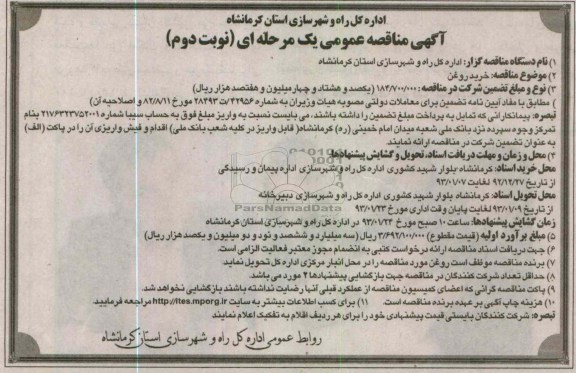 اداره کل راه و شهرسازی استان کرمانشاه
آگهی مناقصه عمومی یک مرحله ای (نوبت دوم)
۱) نام دستگاه مناقصه گزار: اداره کل راه و شهرسازی استان کرمانشاه
۲) موضوع مناقصه: خرید روغن
۳) نوع و مبلغ تضمین شرکت در مناقصه: ۱۸۴/۷۰۰/۰۰۰ (یکصد و هشتاد و چهار میلیون و هفتصد هزار ریال)
) مطابق با مفاد آیین نامه تضمین برای معاملات دولتی مصوبه هیات وزیران به شماره ۴۲۹۵۶/ت ۲۸۴۹۳ مورخ ۸۲/۸/۱۱ و اصلاحیه آن)
تبصره: پیمانکارانی که تمایل به پرداخت مبلغ تضمین را داشته باشند، می بایست نسبت به واریز مبلغ فوق به حساب سیبا شماره ۲۱۷۶۴۲۳۷۵۲۰۰۱ بنام
تمرکز وجوه سپرده نزد بانک ملی شعبه میدان امام خمینی (ره) کرمانشاه( قابل واریز در کلیه شعب بانک ملی) اقدام و فیش واریزی آن را در پاکت (الف)
به عنوان تضمین شرکت در مناقصه ارائه نمایند.
۴) محل و زمان و مهلت دریافت اسناد، تحویل و گشایش پیشنهادها:
محل خرید اسناد: کرمانشاه بلوار شهید کشوری اداره کل راه و شهرسازی اداره پیمان و رسیدگی
از تاریخ ۹۲/۱۲/۲۷ لغایت ۹۳/۰۱/۰۷
محل تحویل اسناد: کرمانشاه بلوار شهید کشوری اداره کل راه و شهرسازی دبیرخانه
از تاریخ ۹۳/۰۱/۰۹ لغایت پایان وقت اداری مورخ ۹۳/۰۱/۲۳
ParsNamadData
زمان گشایش پیشنهادها: ساعت ۱۰ صبح مورخ ۹۳/۰۱/۲۴ در اداره کل راه و شهرسازی استان کرمانشاه
۵) مبلغ برآورد اولیه (قیمت مقطوع) ۳/۶۹۲/۱۰۰/۰۰۰ ریال (سه میلیارد و ششصد و نود و دو میلیون و یکصد هزار ریال)
۶) جهت دریافت اسناد مناقصه ارائه درخواست کتبی به انضمام مجوز معتبر فعالیت الزامی است.
۷) برنده مناقصه موظف است روغن مورد مناقصه را در محل انبار مرکزی اداره کل تحویل نماید
۸) حداقل تعداد شرکت کنندگان در مناقصه جهت بازگشایی پیشنهادها ۲ مورد می باشد.
۹) پاکت مناقصه گرانی که اعضای کمیسیون مناقصه از عملکرد قبلی آنها رضایت نداشته باشند بازگشایی نخواهد شد.
۱۰) هزینه چاپ آگهی بر عهده برنده مناقصه است. ۱۱) برای کسب اطلاعات بیشتر به سایت http://Ites.mporg.ir مراجعه فرمایید
تبصره: شرکت کنندگان بایستی قیمت پیشنهادی خود را برای هر ردیف اقلام به تفکیک اعلام نمایند
روابط عمومی اداره کل راه و شهرسازی استان کرمانشاه